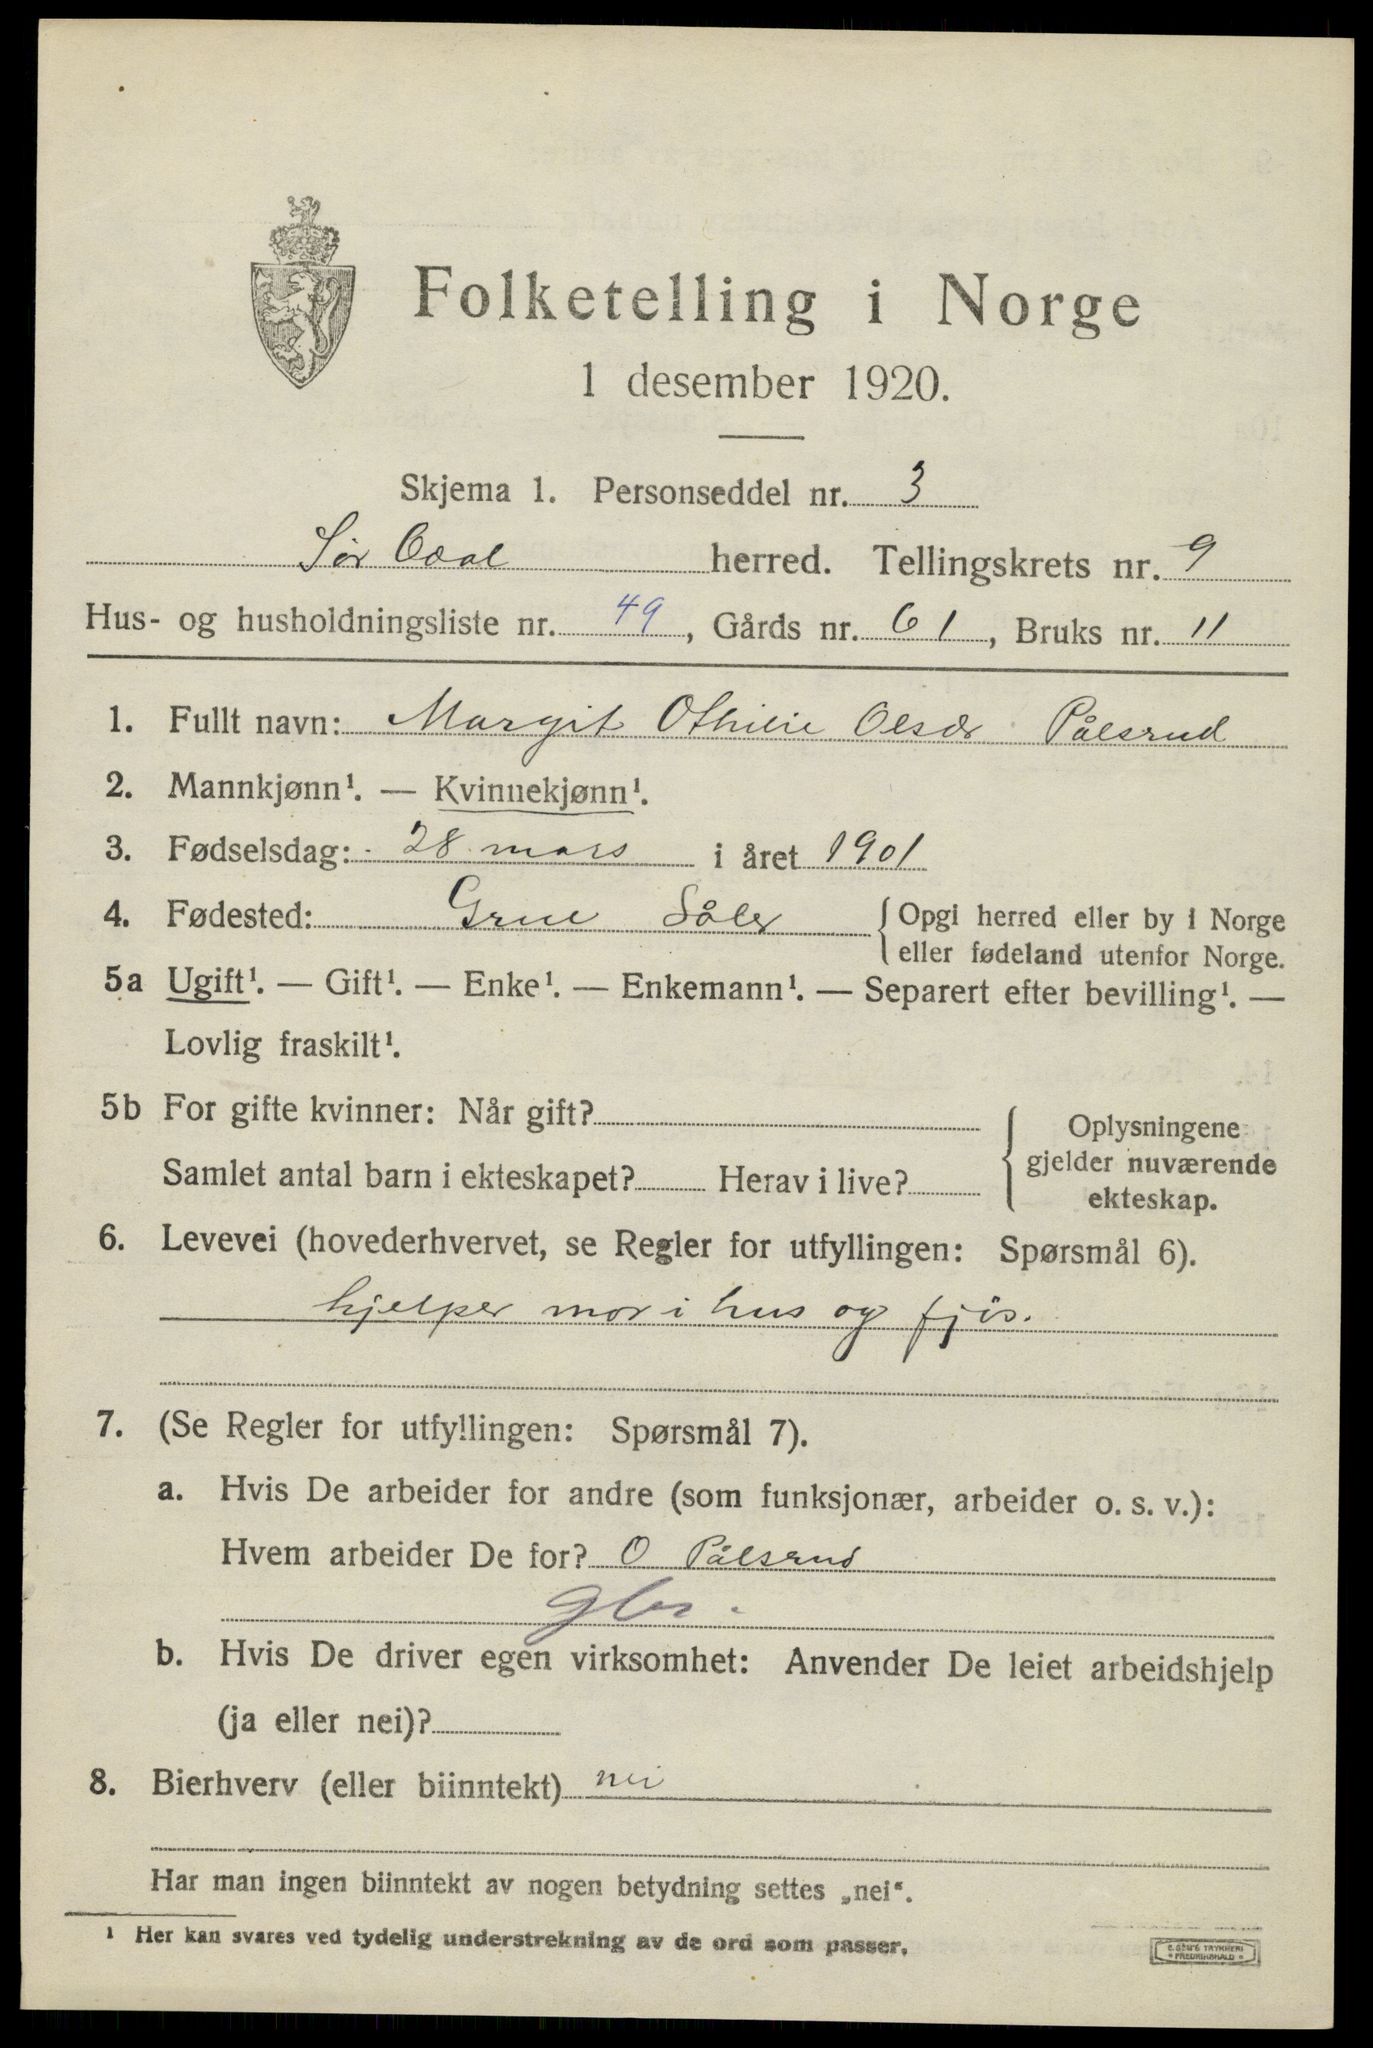 Folketelling i Norge
1 desember 1920.
Skjema 1. Personseddel nr. 3
Sør Odal herred. Tellingskrets nr. 9
Hus- og husholdningsliste nr. 49, Gårds nr. 61, Bruks nr. 11
1. Fullt navn: Margit Othilie Olsdr Pålsrud
2. Mannkjønn¹. — Kvinnekjønn¹.
3. Fødselsdag: 28 mars i året 1901
4. Fødested: Grue Sóler { Opgi herred eller by i Norge
eller fødeland utenfor Norge.
5a Ugift¹. — Gift¹. — Enke¹. — Enkemann¹. — Separert efter bevilling¹. —
Lovlig fraskilt¹.
5b For gifte kvinner: Når gift?
Samlet antal barn i ekteskapet? Herav i live?
{ Oplysningene
gjelder nuværende
ekteskap.
6. Levevei (hovederhvervet, se Regler for utfyllingen: Spørsmål 6).
hjelper mor i hus og fjøs.
7. (Se Regler for utfyllingen: Spørsmål 7).
a. Hvis De arbeider for andre (som funksjonær, arbeider o. s. v.):
Hvem arbeider De for? O Pålsrud
gbr.
b. Hvis De driver egen virksomhet: Anvender De leiet arbeidshjelp
(ja eller nei)?
8. Bierhverv (eller biinntekt) nei
Har man ingen biinntekt av nogen betydning settes „nei“.
¹ Her kan svares ved tydelig understrekning av de ord som passer.
E. SEM'S TRYKKERI
FREDRIKSHALD